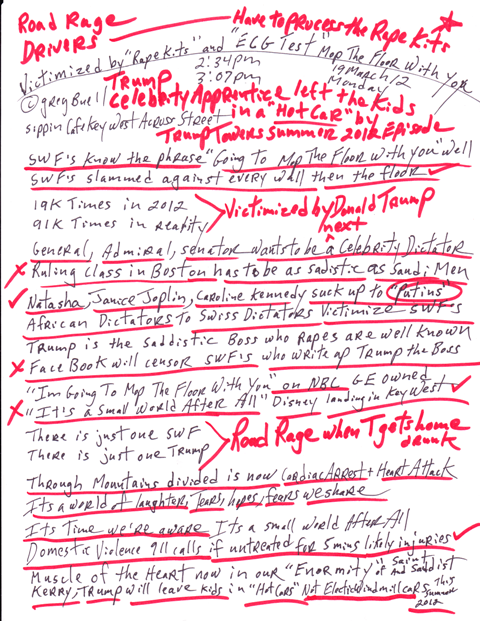 Road Rage
DRIVERS
Have to process the Rape Kits
Victimized by "Rape Kits" and "ECG Test" Mop The Floor With You
2:34pm
3:07pm
19 March/12
Monday
© greg Buell
Sippin Cafe Key West Across Street
Trump
Celebrity Apprentice left the Kids
in a "Hot Car" by
Trump Towers Summer 2012 Episode
SWF's know the phrase "Going to Mop The Floor With you" well
SWF's slammed against every wall then the floor
19K Times in 2012
91K Times in reality
Victimized by Donald Trump
next
General, Admiral, senator wants to be a Celebrity Dictator
Ruling class in Boston has to be as sadistic as Saudi Men
Natasha, Janice Joplin, Caroline Kennedy suck up to "Putins"
African Dictators To Swiss Dictators Victimize SWF's
Trump is the Saddistic Boss who Rapes are well known
Face Book will censor SWF's who write up Trump the Boss
"Im Going To Mop The Floor With You" on NBC GE owned
"It's a Small World After All" Disney landing in Key West
There is just one SWF
There is just one Trump
Road Rage when T gets home
drunk
Through Mountains divided is now Cardiac Arrest + Heart Attack
Its a world of laughter, Tears, hopes, fears we share
Its Time we're aware Its a small world After All
Domestic Violence 911 calls if untreated for 5 mins likely injuries
Muscle of the Heart now in our "Enormity" of Saint And Saddist
Kerry, Trump will leave kids in "Hot Cars" Not Electric Windmill cars This
Summer
2012